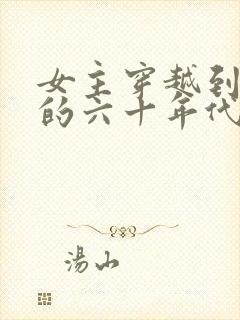 女主穿越到
的六十年代
湯山